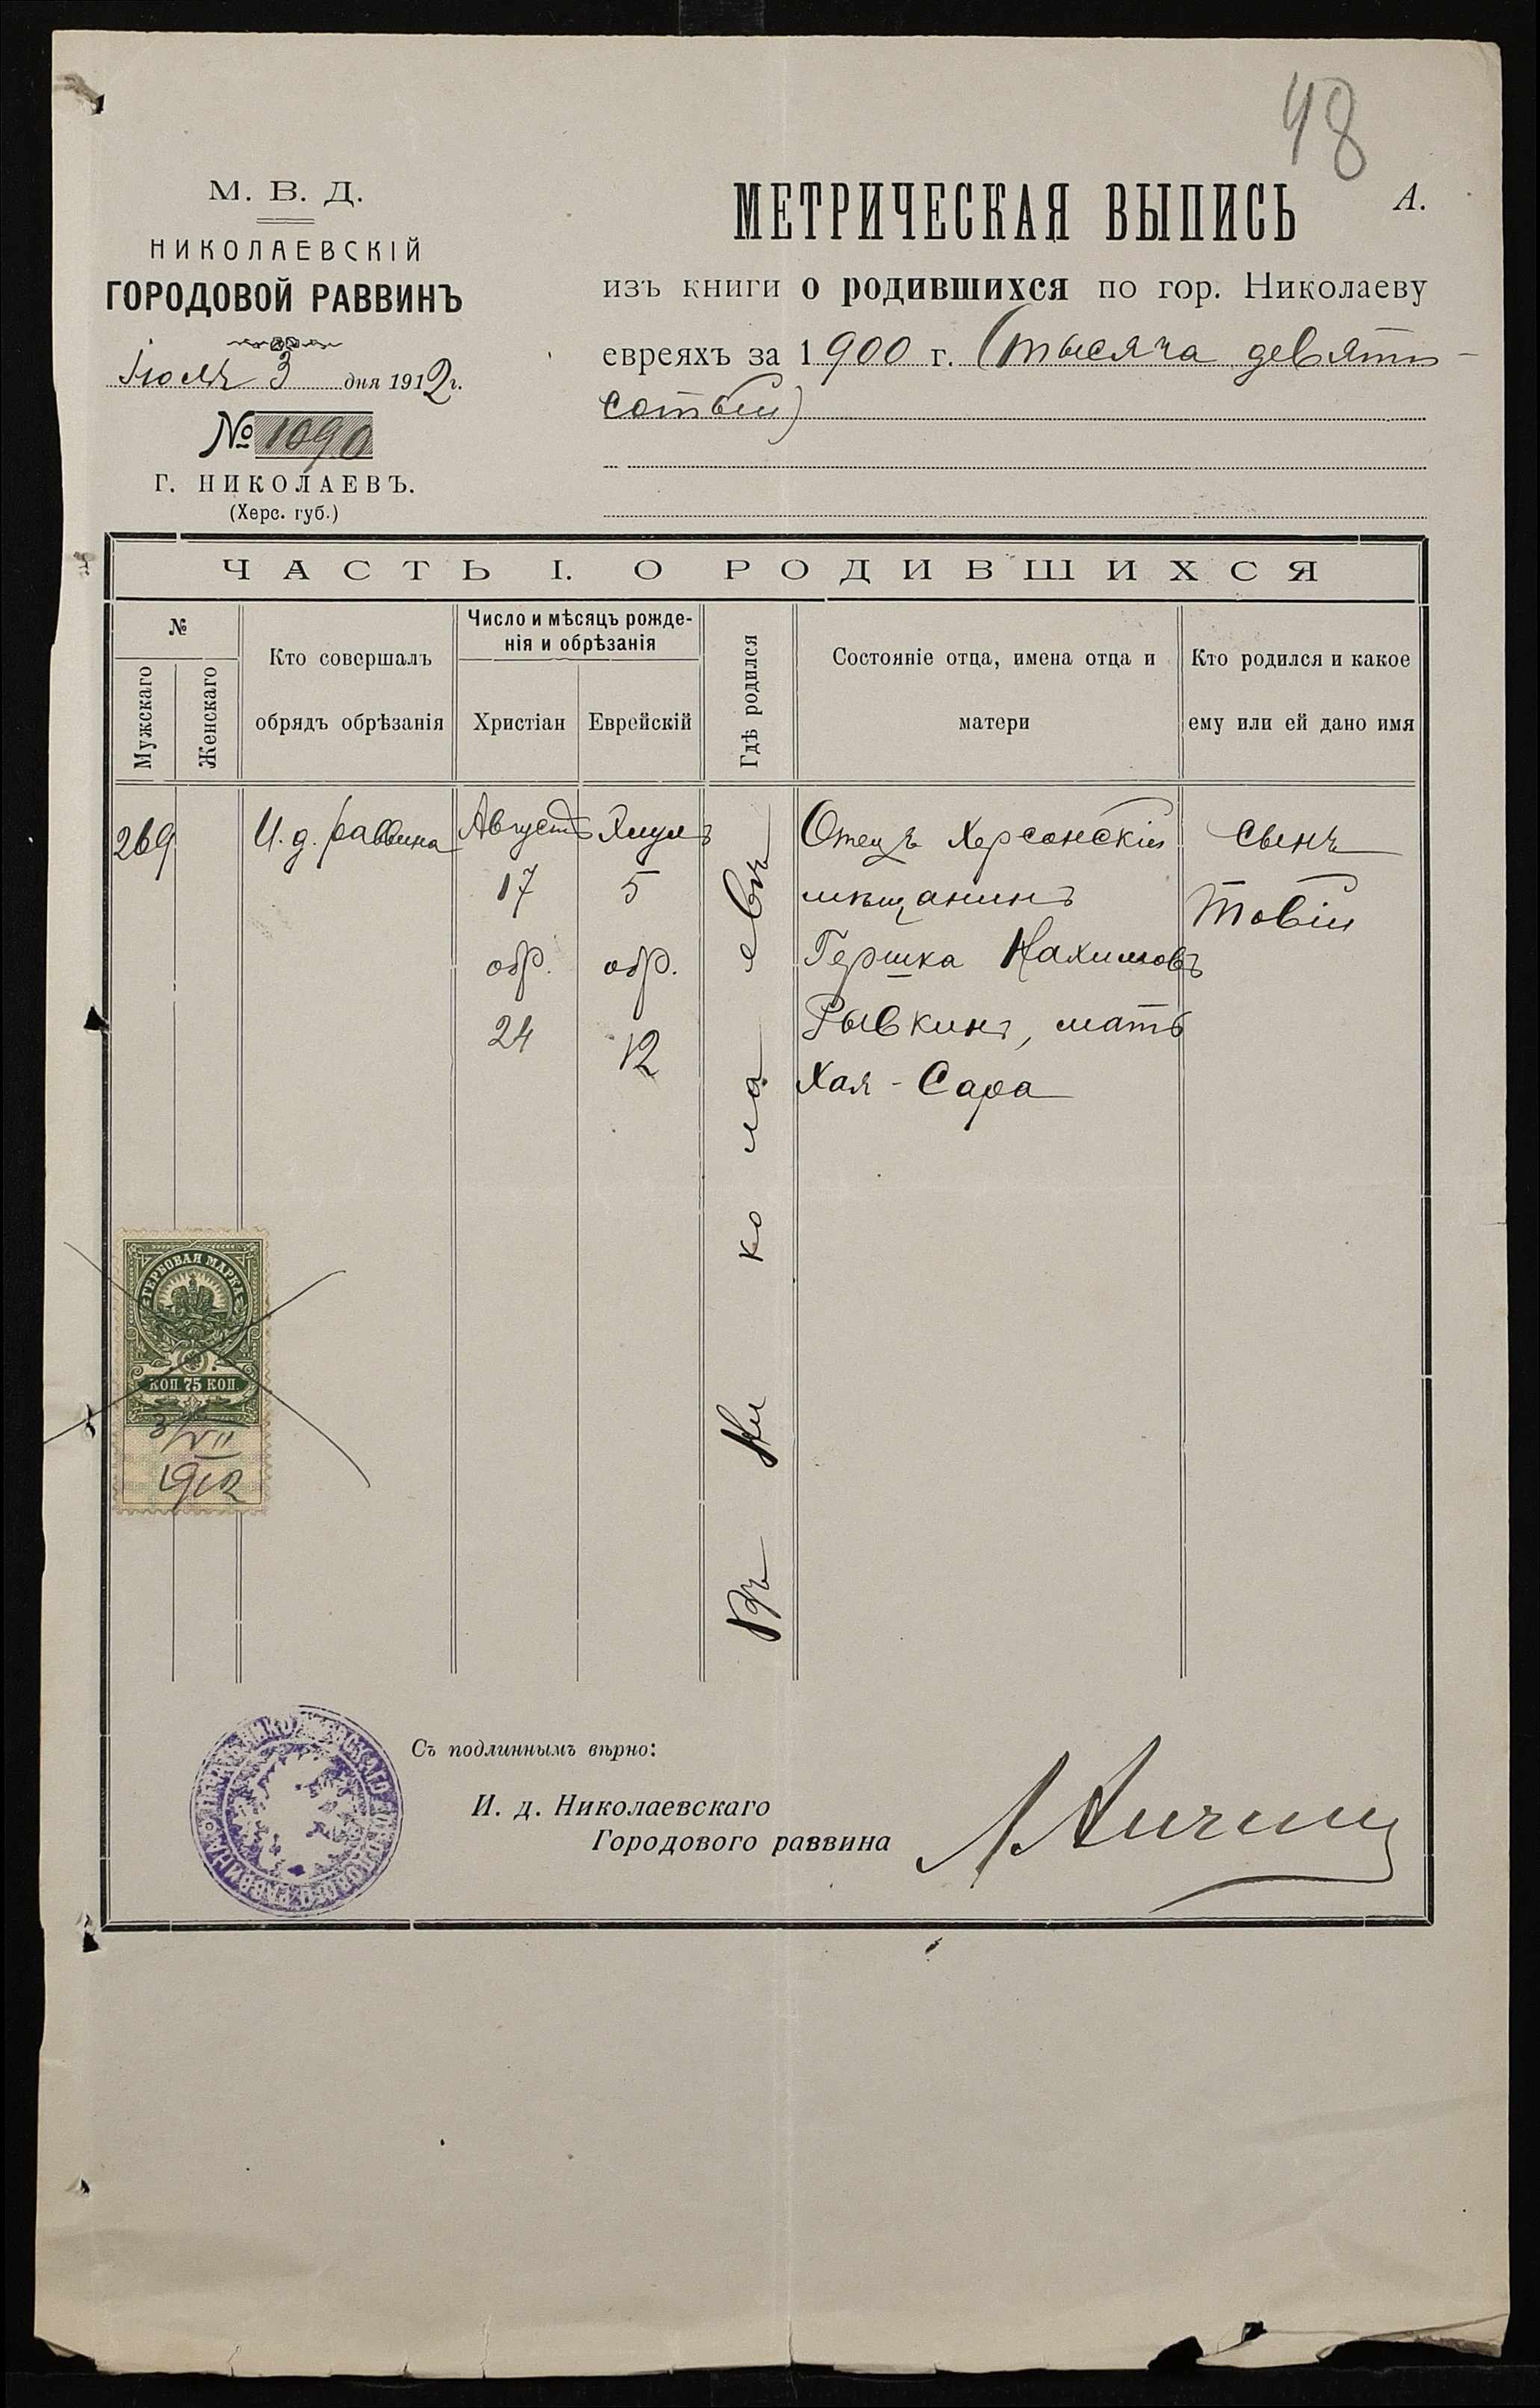 48
М. В. Д.
НИКОЛАЕВСКІЙ
ГОРОДОВОЙ РАВВИНЪ
Іюля 3 дня 1912 г.
№ 1090
Г. НИКОЛАЕВЪ.
(Херс. губ.)
МЕТРИЧЕСКАЯ ВЫПИСЬ
А.
изъ книги о родившихся по гор. Николаеву
евреяхъ за 1900 г. (тысяча девяти-
сотый)
ЧАСТЬ I. О РОДИВШИХСЯ
№
Мужскаго
Женскаго
Кто совершалъ
обрядъ обрѣзанія
Число и мѣсяцъ рожде-
нія и обрѣзанія
Христіан
Еврейскій
Гдѣ родился
Состояніе отца, имена отца и
матери
Кто родился и какое
ему или ей дано имя
269
И. д. раввина
Августъ
17
обр.
24
Элулъ
5
обр.
12
Въ Николаевѣ
Отецъ Херсонскій
мѣщанинъ
Гершка Нахимовъ
Рывкинъ, мать
Хая-Сара
сынъ
Товій
ГЕРБОВАЯ МАРКА
КОП 75 КОП
3/VII
1912
Съ подлиннымъ вѣрно:
И. д. Николаевскаго
Городового раввина
НИКОЛАЕВСКАГО ГОРОДОВОГО РАВВИНА